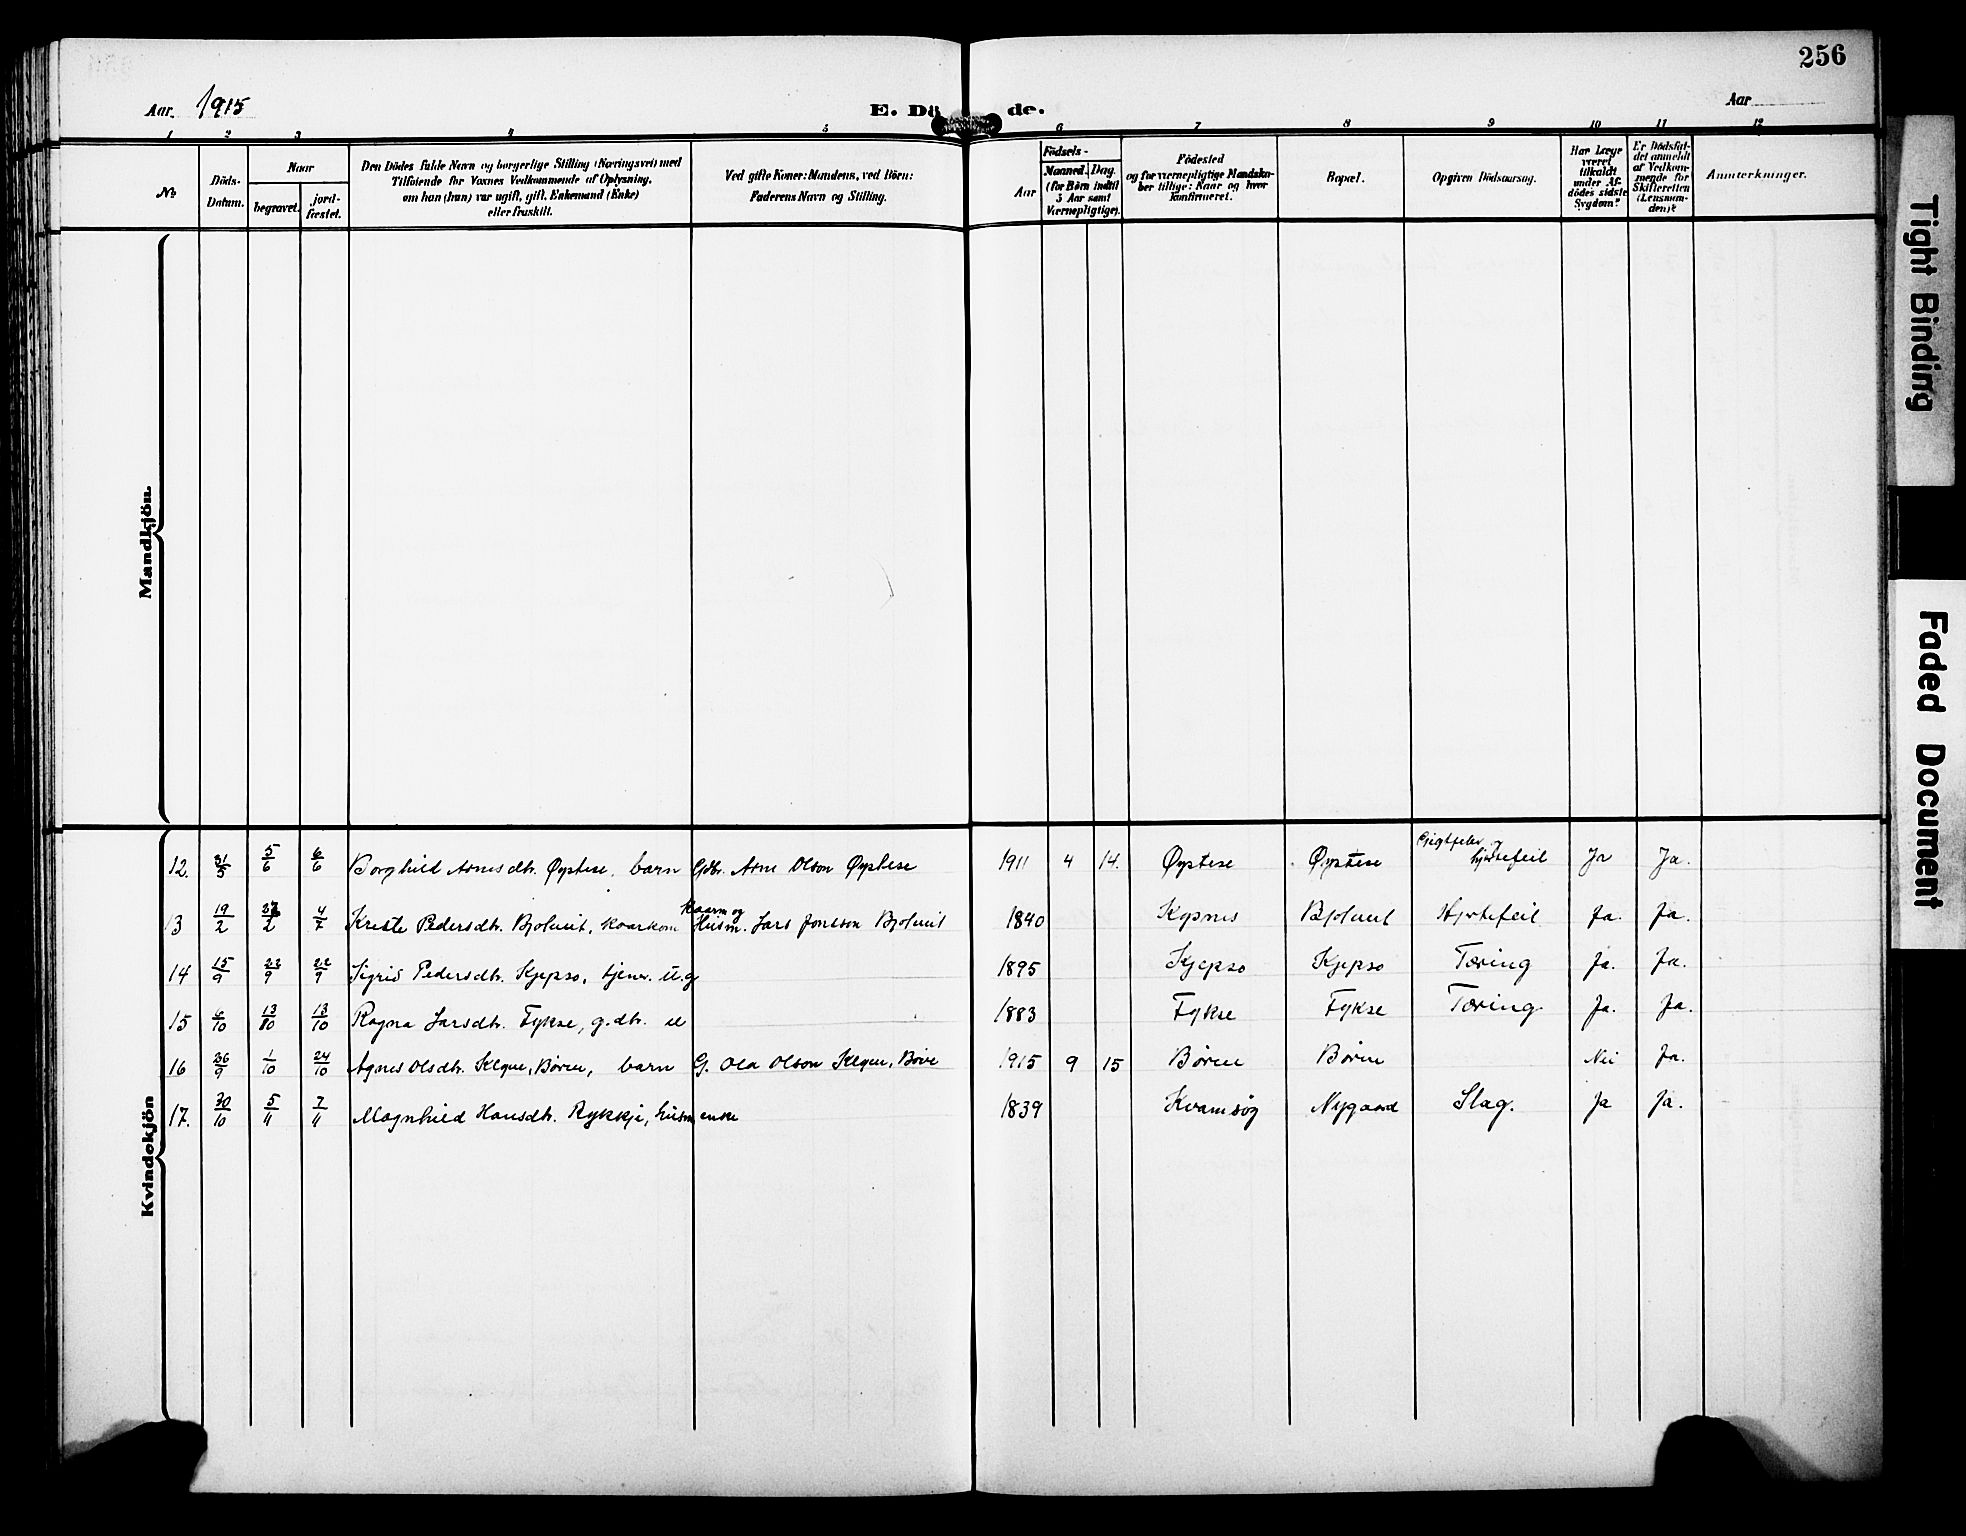 256
Aar. 1915
E. Döde.
Aar
1 2 3 4 5 6 7 8 9 10 11 12
№
Döds-Datum.
Naar
begravet.
jord-fæstet.
Den Dödes fulde Navn og borgerlige Stilling (Næringsvei) med
Tilföiende for Voxnes Vedkommende af Oplysning,
om han (hun) var ugift, gift, Enkemand (Enke)
eller fraskilt.
Ved gifte Koner: Mandens, ved Börn:
Faderens Navn og Stilling.
Födsels-
Aar
Maaned. Dag.
(for Börn indtil
5 Aar samt
Værnepligtige).
Födested
og for værnepligtige Mandska-
ber tillige: Naar og hvor
konfirmeret.
Bopæl.
Opgiven Dödsaarsag.
Har Læge
været
tilkaldt
under Af-
dödes sidste
Sygdom?
Er Dödsfal-
det anmeldt
af Vedkom-
mende for
Skifteretten
(Lensman-
den)?
Anmærkninger.
Mandkjön.
Kvindekjön
12. 31/5 5/6 6/6 Borghild Arnesdtr. Øystese, barn Gdbr. Arne Olson Øystese 1911 4 14. Øystese Øystese Gigtfeber og hjertefeil Ja Ja.
13 19/2 2 4/7 Kristi Pedersdtr. Kaarm og Husm. Lars Jonsson 1840 Hjertefeil Ja. Ja.
14 15/9 22/9 22/9 Sigrid Pedersdtr. Kjepso, tjener. u.g 1895 Kjepso Kjepso Tæring Ja. Ja.
15 6/10 13/10 13/10 Ragna Larsdtr. Fykse, g.dtr. u 1883 Fykse Fykse Tæring Ja. Ja.
16 26/9 1/10 24/10 Agnes Olsdtr. barn G. Ola Olson 1915 9 15 Børen Børen Nei Ja.
17. 30/10 5/11 7/11 Magnhild Hansdtr. Rykkje, husm enke 1839 Kvamsøg Nygaard Slag. Ja Ja.
Tight Binding
Faded Document